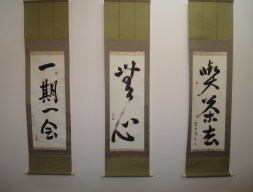 喫茶去
無心
一期一会